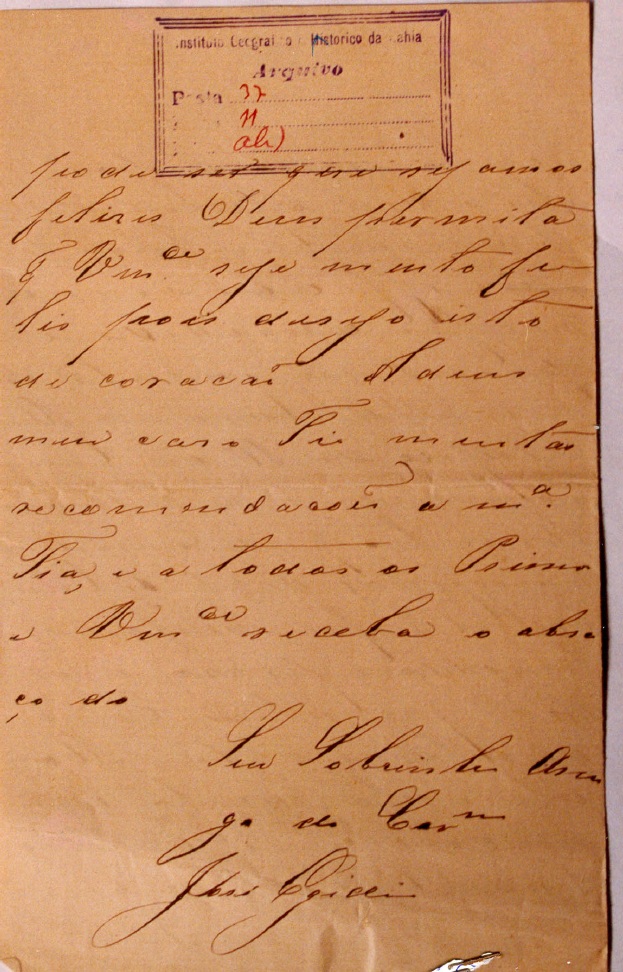 Instituto Geografico e Historico da Bahia
Arquivo
Pasta 37
11
pode ser que sejamos
felizes Deus permita
q̃ Vm.ce seje muito fe-
lis pois desejo isto
de coracaõ Adeus
meu caro Tio muitas
recomendacoẽs a m.a
Tia, e a todos os Primos
e Vm.ce receba o abra
ço do
Seu Sobrinho Ami
go do Corm
José Egidio